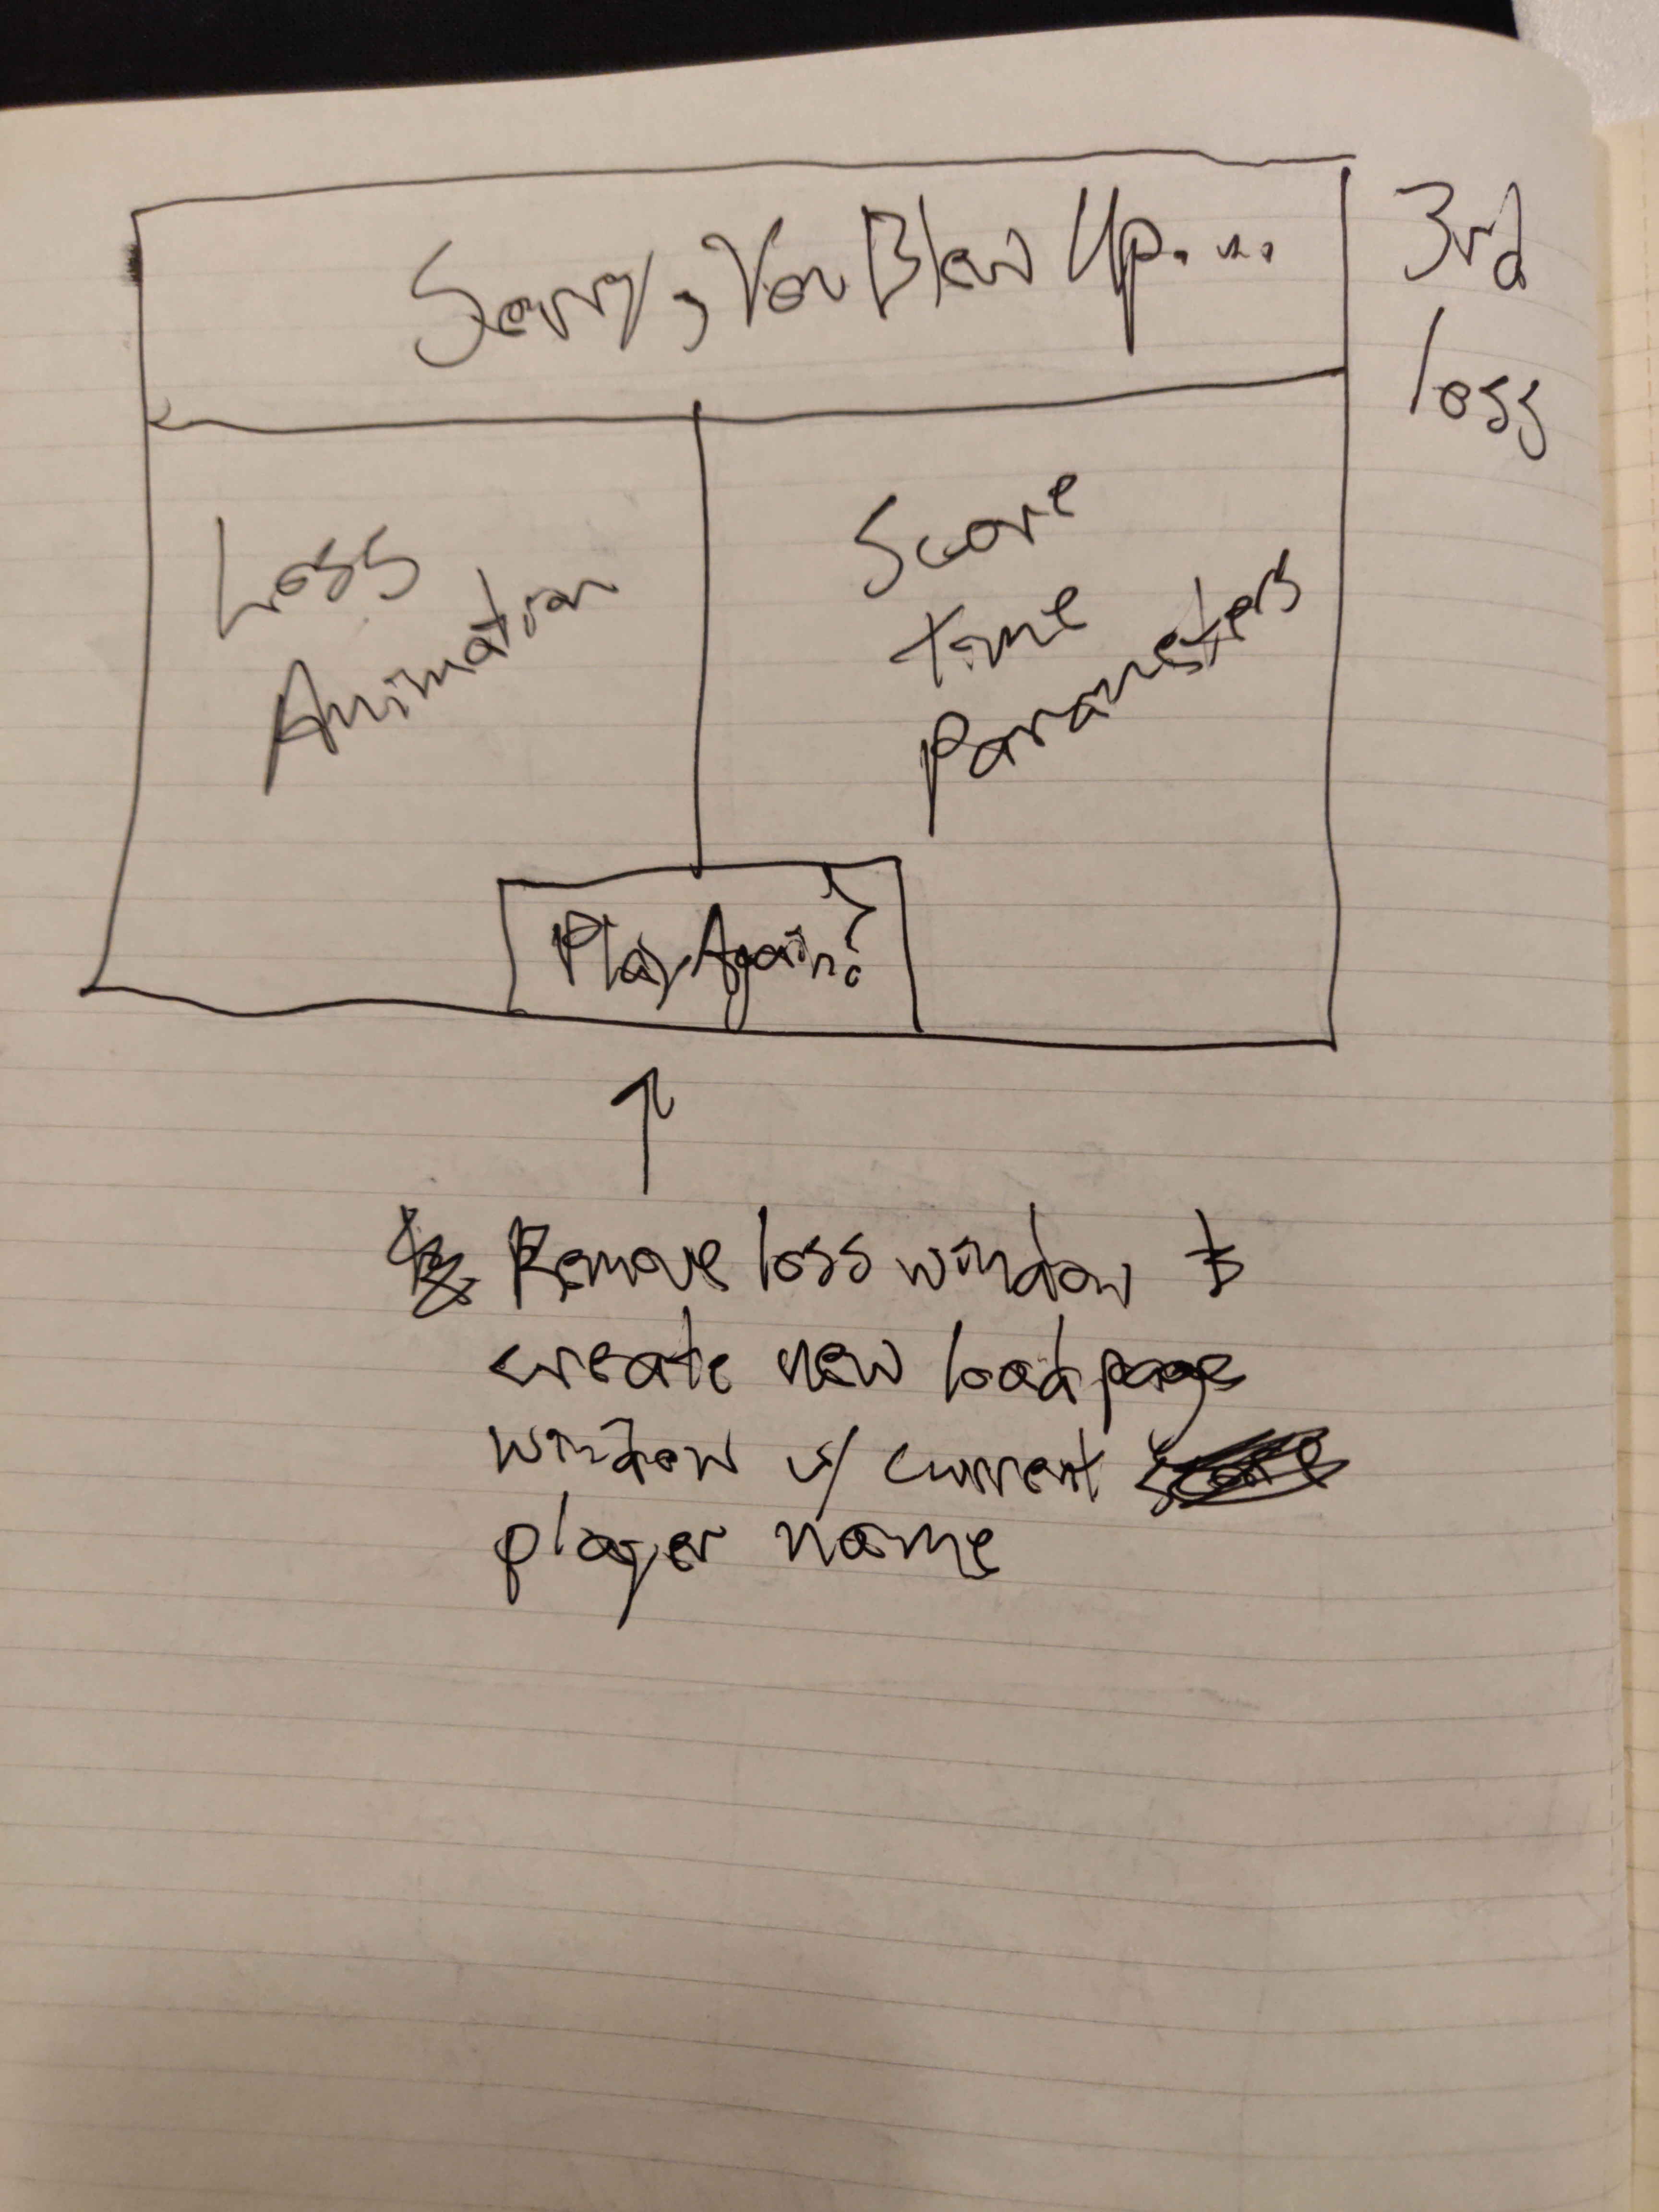 Sorry, You Blew Up....
3rd
loss
Loss
Animation
Score
time
parameters
Play Again?
Remove loss window &
create new load page
window w/ current
player name